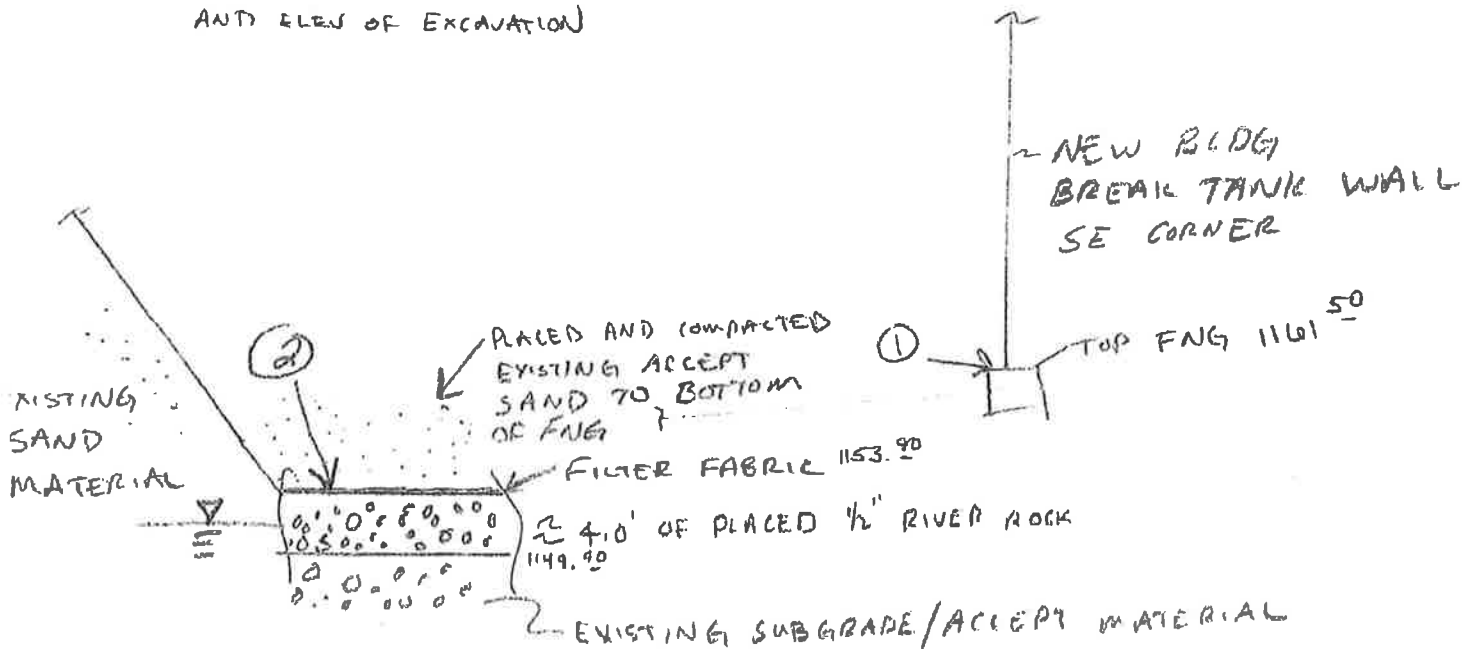 AND ELEV OF EXCAVATION
NEW BLDG
BREAK TANK WALL
SE CORNER
①
TOP FNG 1161 50
②
PLACED AND COMPACTED
EXISTING ACCEPT
SAND TO BOTTOM
OF FNG
XISTING
SAND
MATERIAL
FILTER FABRIC 1153.90
≈ 4.0' OF PLACED 1/2" RIVER ROCK
1149.90
EXISTING SUBGRADE/ACCEPT MATERIAL